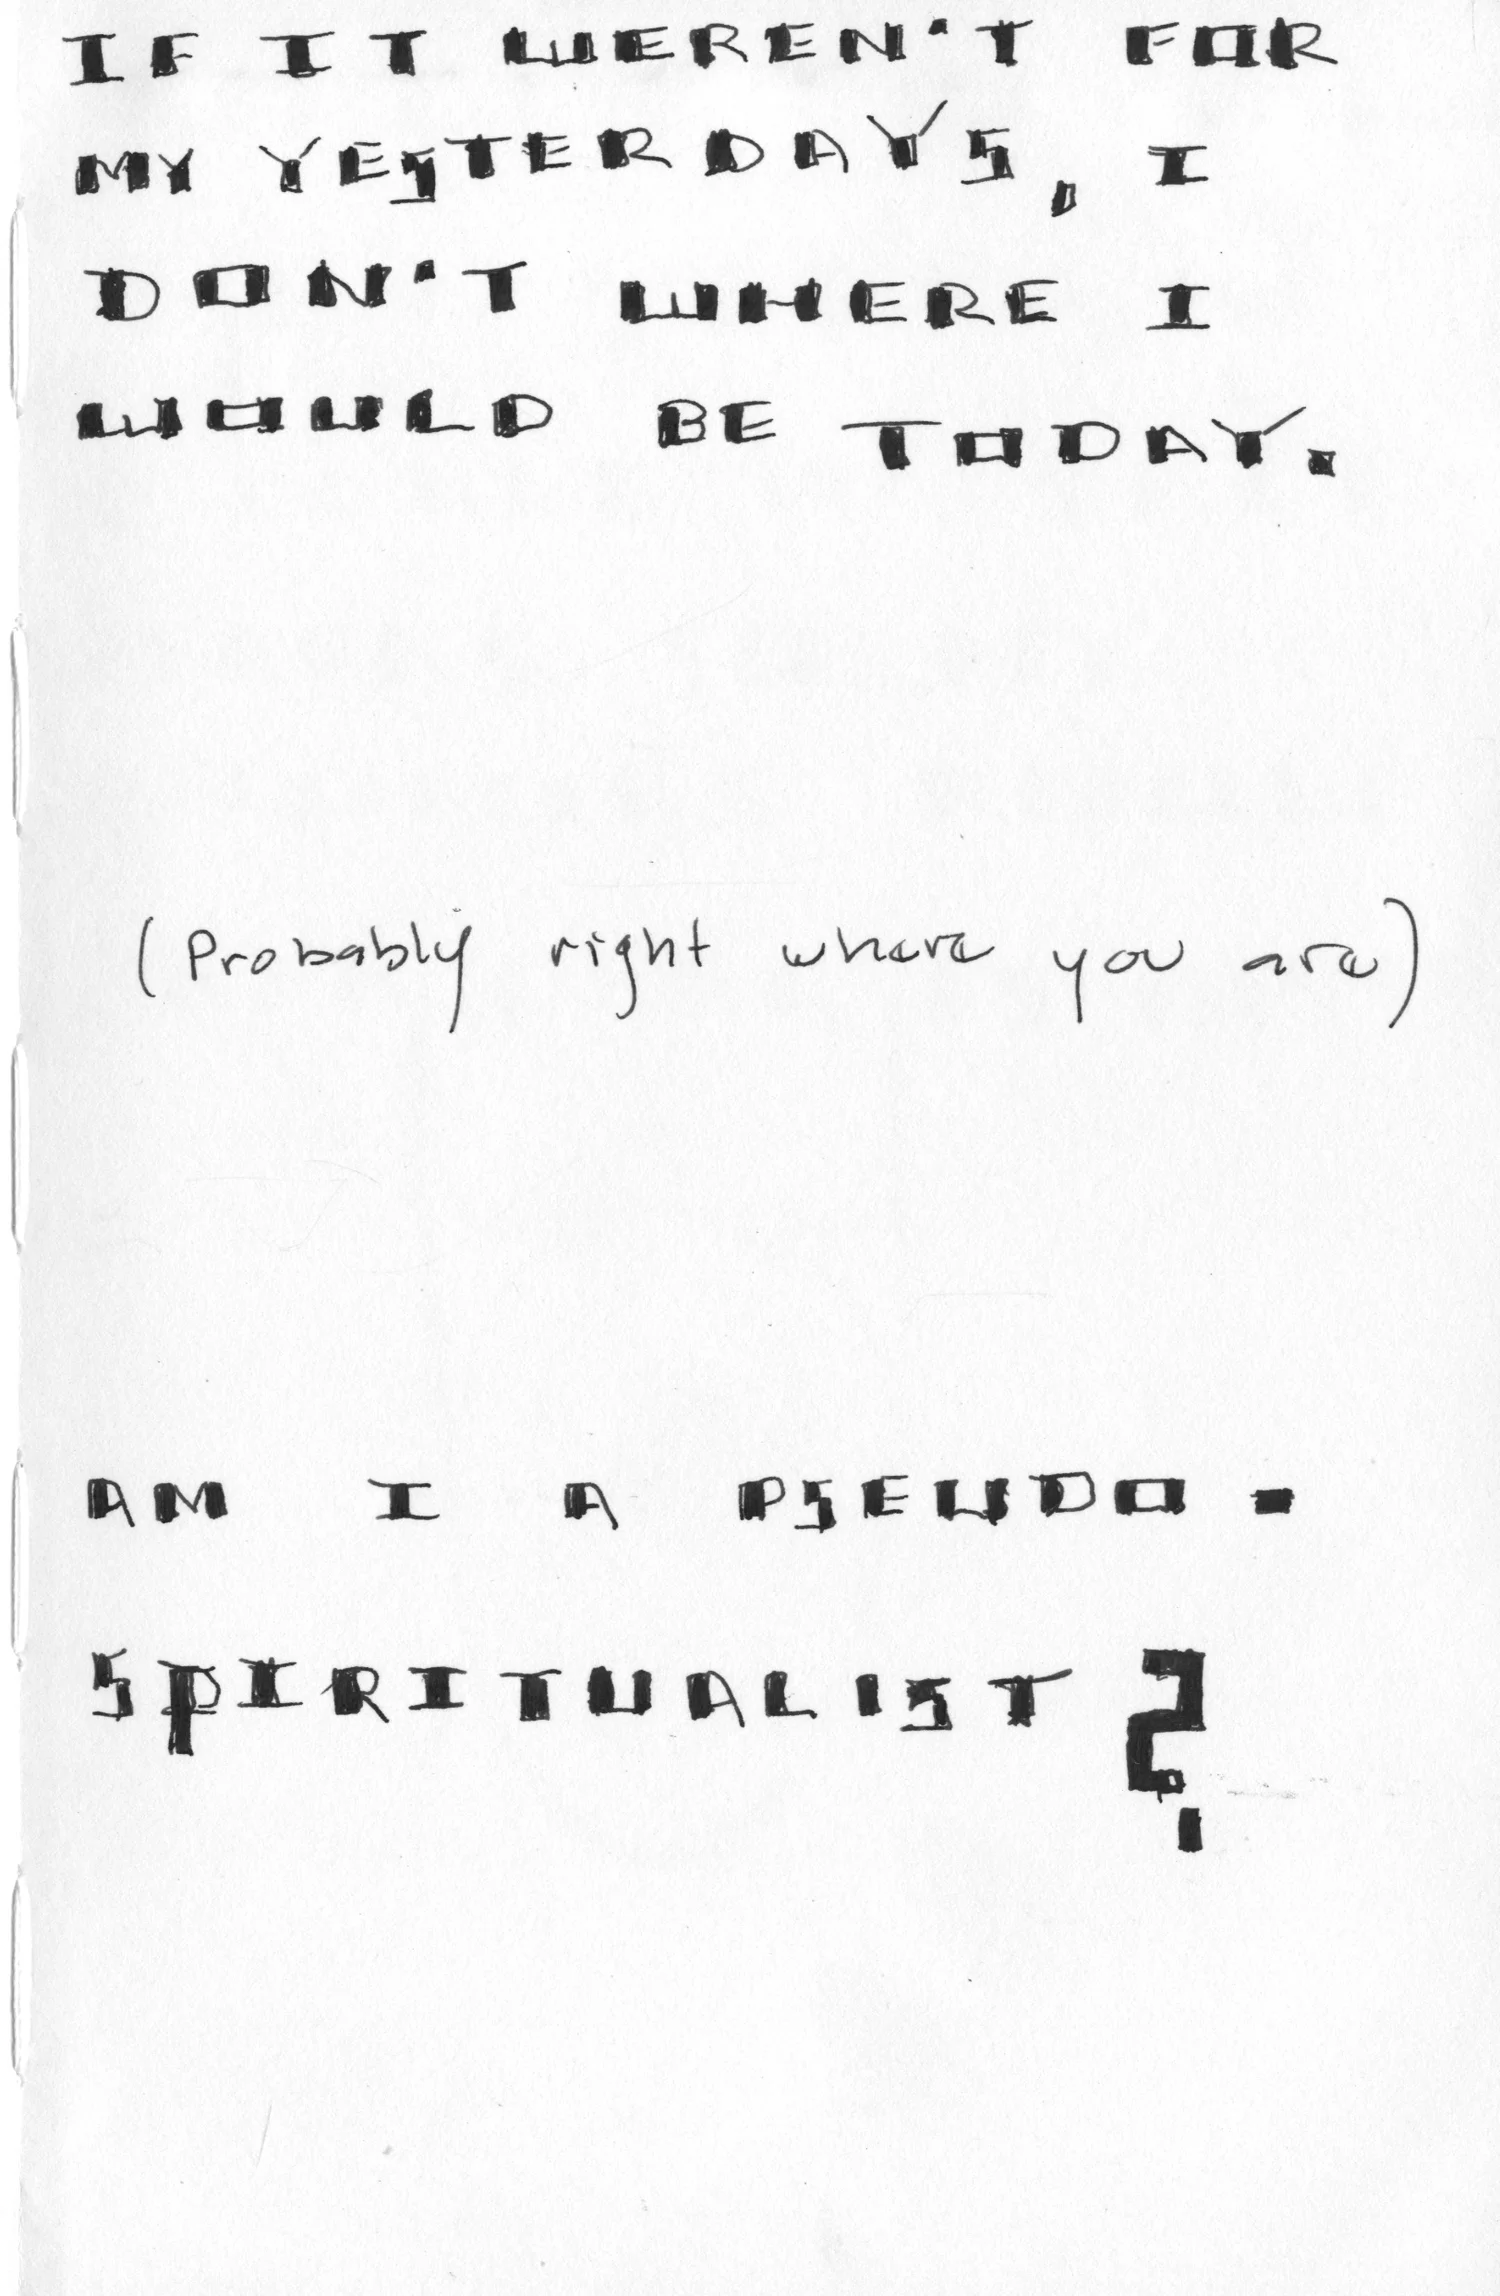 IF IT WEREN'T FOR
MY YESTERDAYS, I
DON'T WHERE I
WOULD BE TODAY.
(Probably right where you are)
AM I A PSEUDO-
SPIRITUALIST?